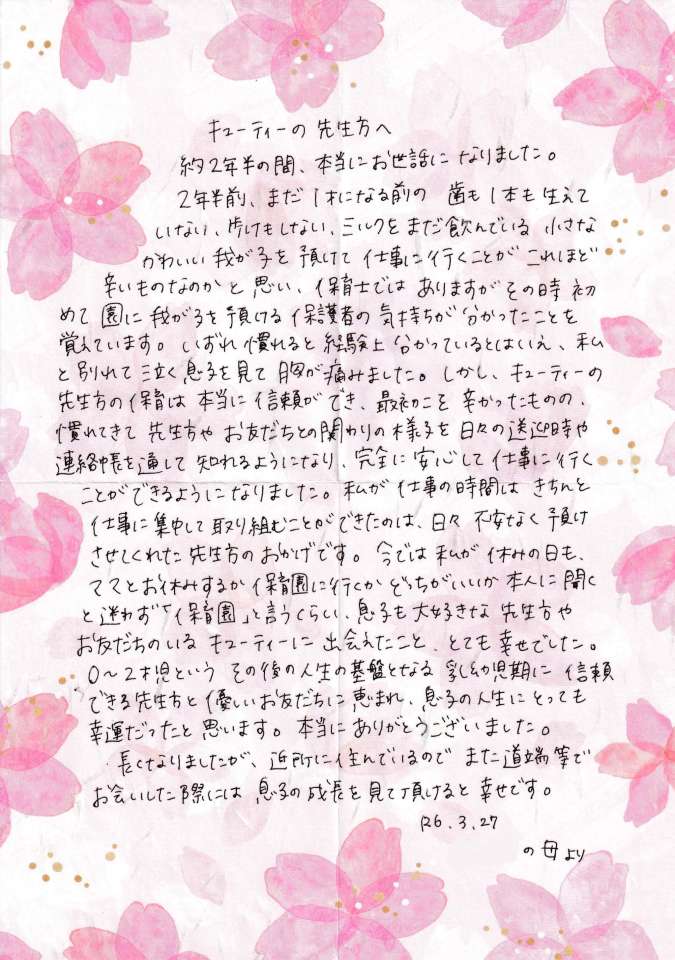 キューティーの先生方へ
約2年半の間、本当にお世話になりました。
2年半前、まだ1才になる前の 歯も1本も生えて
いない、歩けもしない、ミルクをまだ飲んでいる 小さな
かわいい我が子を預けて仕事に行くことが これほど
辛いものなのかと思い、保育士では ありますがその時 初
めて園に我が子を預ける保護者の気持ちが分かったことを
覚えています。いずれ慣れると経験上分かっているとはいえ、私
と別れて泣く息子を見て胸が痛みました。しかし、キューティーの
先生方の保育は本当に信頼ができ、最初こそ辛かったものの、
慣れてきて先生方や お友だちとの関わりの様子を日々の送迎時や
連絡帳を通して知れるようになり、完全に安心して仕事に行く
ことができるようになりました。私が仕事の時間は きちんと
仕事に集中して取り組むことができたのは、日々 不安なく預け
させてくれた先生方のおかげです。今では私が休みの日も、
ママとお休みするか保育園に行くかどっちがいいか本人に聞く
と迷わず「保育園」と言うくらい、息子も大好きな先生方や
お友だちのいる キューティーに出会えたこと、とても幸せでした。
0〜2才児という その後の人生の基盤となる 乳幼児期に 信頼
できる先生方と優しいお友だちに恵まれ、息子の人生にとっても
幸運だったと思います。本当にありがとうございました。
長くなりましたが、近所に住んでいるので また道端等で
お会いした際には 息子の成長を見て頂けると幸せです。
R6.3.27
の母より